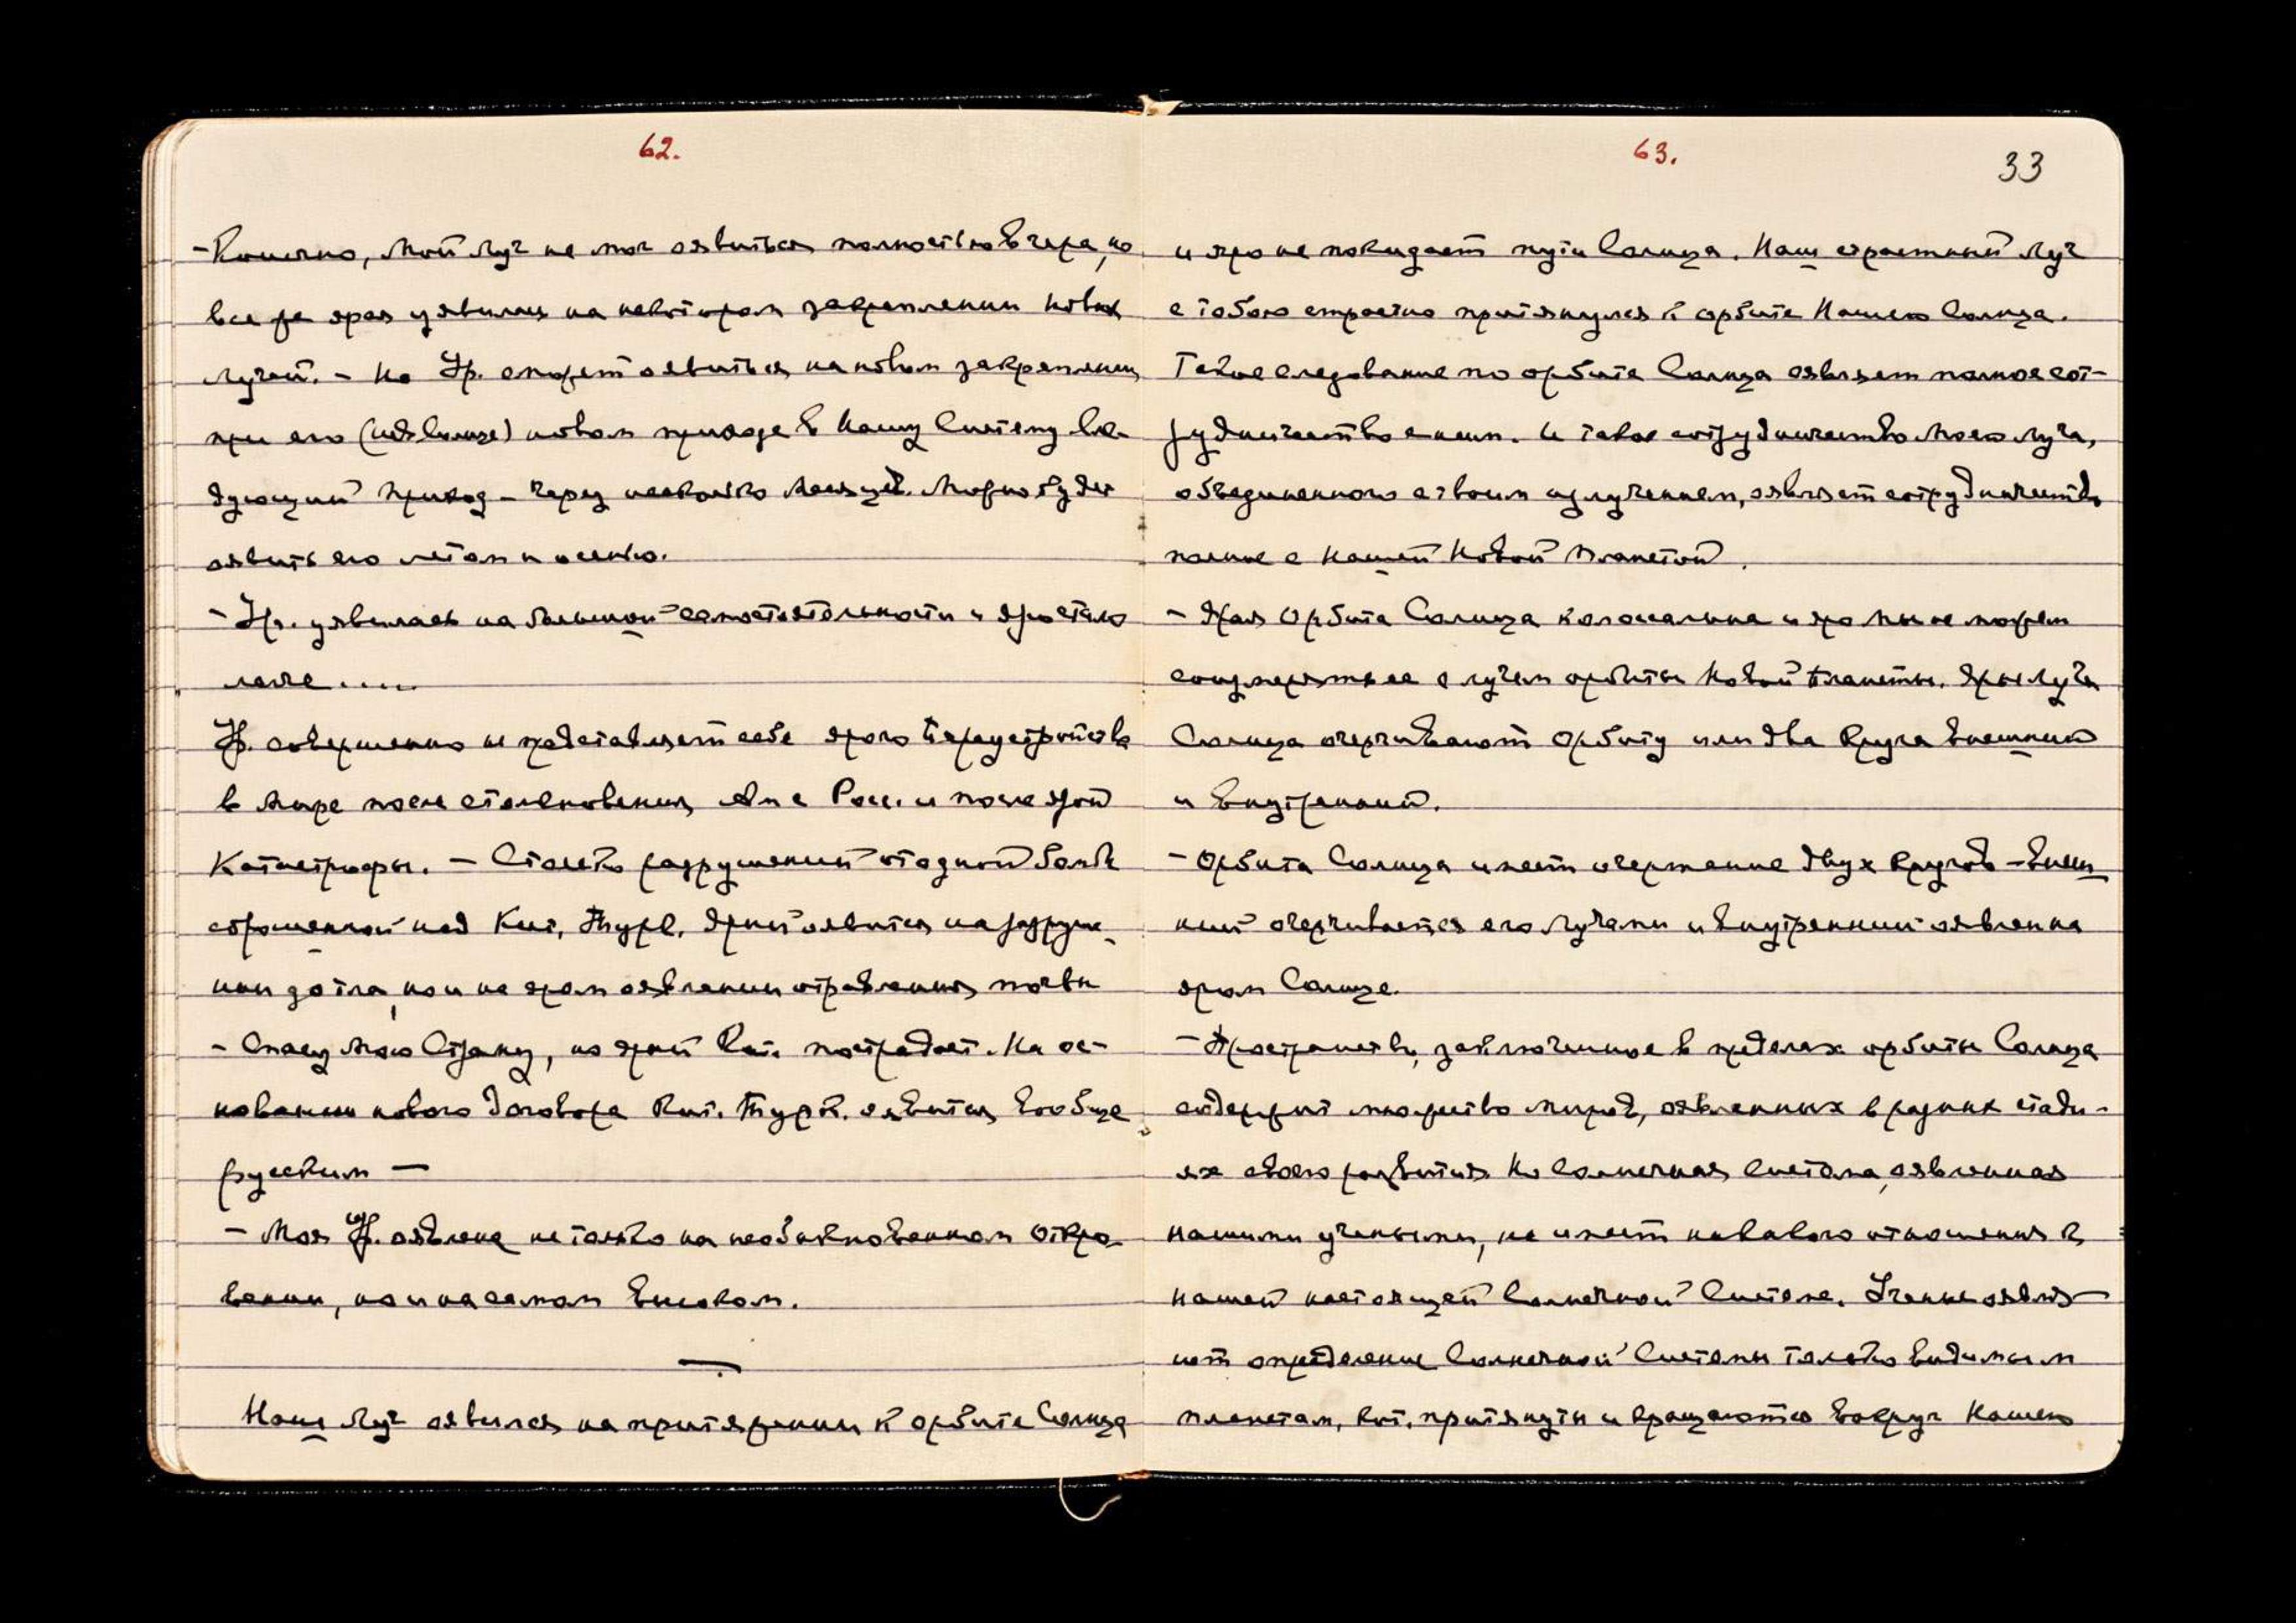 62.
- Конечно, Мой Луч не мог оявиться полностью вчера, но
все же ярая уявилась на некотором закреплении новых
лучей. - Но Ур. сможет оявиться на новом закреплении
при его (из Солнце) новом приходе в Нашу Систему. Сле-
дующий приход - через несколько месяцев. Можно будет
оявить его летом и осенью.
- Ур. уявилась на большой самостоятельности и яро стало
легче .....
Ур. совершенно не представляет себе ярого Переустройства
в Мире после столкновения Ам с Росс. и после ярой
Катастрофы. - Столько разрушений от одной бомбы
сброшенной над Кит, Турк. Ярый оявится на разруше-
нии до тла, но и на яром оявлении отравления почвы
- Спасу Мою Страну, но ярый Кит. пострадает. На ос-
новании нового договора Кит. Турк. оявится вообще
русским —
- Моя Ур. оявлена не только на необыкновенном Откро-
вении, но и на самом Высоком.
Наш Луч оявился на притяжении к орбите Солнца
63.
33
и яро не покидает пути Солнца. Наш страстный Луч
с тобою страстно притянулся к орбите Нашего Солнца.
Такое следование по орбите Солнца оявляет полное сот-
рудничество с ним. И такое сотрудничество Моего Луча,
объединенного с твоим излучением, оявляет сотрудничество
полное с Нашей Новой Планетой.
- Ярая Орбита Солнца колоссальна и яро мы не можем
с лучем орбиты Новой Планеты. Ярые Лучи
Солнца очерчивают Орбиту или два Круга Внешний
и Внутренний.
- Орбита Солнца имеет очертание двух кругов - Внеш
ний очерчивается его Лучами и Внутренний оявлен на
яром Солнце.
- Пространство, заключенное в пределах орбиты Солнца
содержит множество миров, оявленных в разных стади-
ях своего развития. Но Солнечная Система, оявленная
нашими учеными, не имеет никакого отношения к
нашей настоящей Солнечной Системе. Ученые оявля-
ют определение Солнечной Системы только видимым
планетам, кот. притянуты и вращаются вокруг Нашего